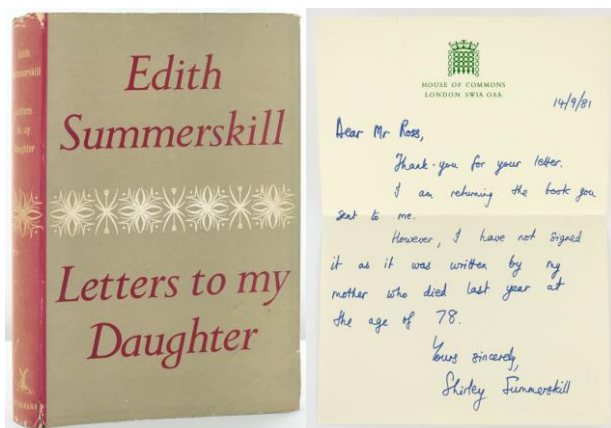 Edith
Summerskill
Letters
to my
Daughter
Edith
Summerskill
Letters to my
Daughter
HOUSE OF COMMONS
LONDON SW1A 0AA
14/9/81
Dear Mr Ross,
Thank-you for your letter.
I am returning the book you
sent to me.
However, I have not signed
it as it was written by my
mother who died last year at
the age of 78.
Yours sincerely,
Shirley Summerskill